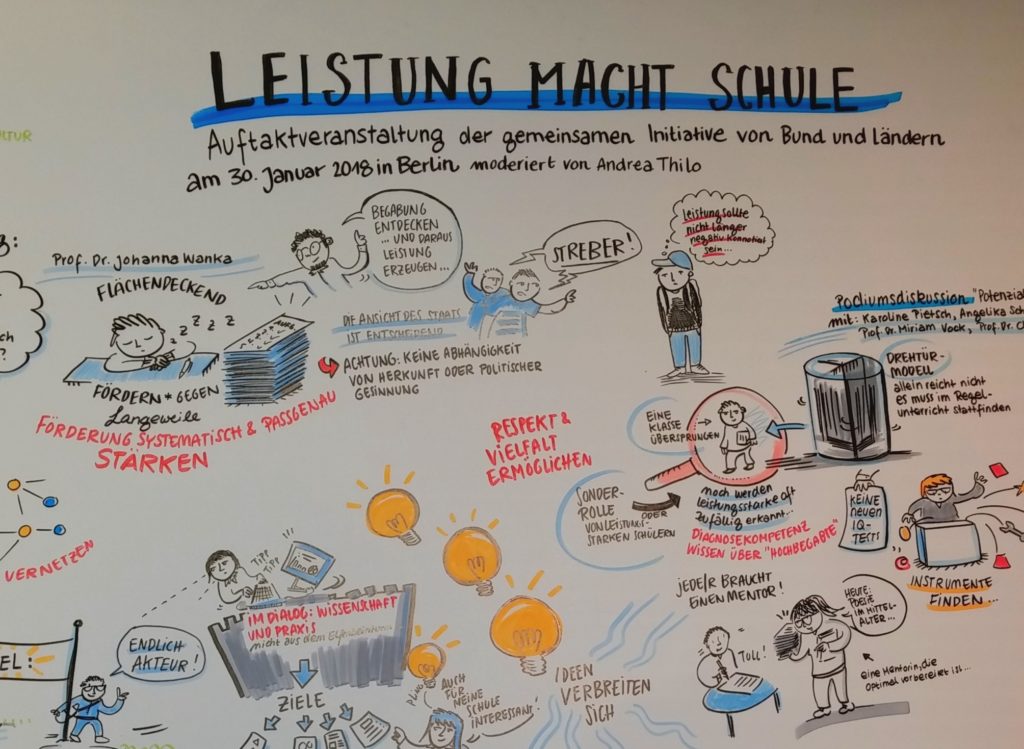 LEISTUNG MACHT SCHULE
Auftaktveranstaltung der gemeinsamen Initiative von Bund und Ländern
am 30. Januar 2018 in Berlin moderiert von Andrea Thilo
Prof. Dr. Johanna Wanka
FLÄCHENDECKEND
Z Z Z Z
FÖRDERN* GEGEN
Langeweile
FÖRDERUNG SYSTEMATISCH & PASSGENAU
STÄRKEN
BEGABUNG
ENTDECKEN
... UND DARAUS
LEISTUNG
ERZEUGEN...
STREBER!
DIE ANSICHT DES STAATS
IST ENTSCHEIDEND
ACHTUNG: KEINE ABHÄNGIGKEIT
VON HERKUNFT ODER POLITISCHER
GESINNUNG
leistung sollte
nicht länger
negativ konnotiert
sein...
Podiumsdiskussion
mit: Karoline Pietsch, Angelika
Prof. Dr. Miriam Vock, Prof. Dr.
DREHTÜR-
MODELL
allein reicht nicht
es muss im Regel-
unterricht stattfinden
RESPEKT &
VIELFALT
ERMÖGLICHEN
EINE
KLASSE
ÜBERSPRUNGEN
SONDER-
ROLLE
VON LEISTUNGS-
STARKEN SCHÜLERN
ODER
noch werden
leistungsstarke oft
zufällig erkannt...
DIAGNOSEKOMPETENZ
WISSEN ÜBER "HOCHBEGABTE"
KEINE
NEUEN
IQ-
TESTS
INSTRUMENTE
FINDEN...
VERNETZEN
TIPP
TIPP
IM DIALOG: WISSENSCHAFT
UND PRAXIS
nicht aus dem Elfenbeinturm
ZIELE
ENDLICH
AKTEUR!
AUCH
FÜR
MEINE
SCHULE
INTERESSANT!
IDEEN
VERBREITEN
SICH
JEDE/R BRAUCHT
EINEN MENTOR!
TOLL!
HEUTE:
POESIE
IM MITTEL-
ALTER...
eine Mentorin, die
optimal vorbereitet ist...